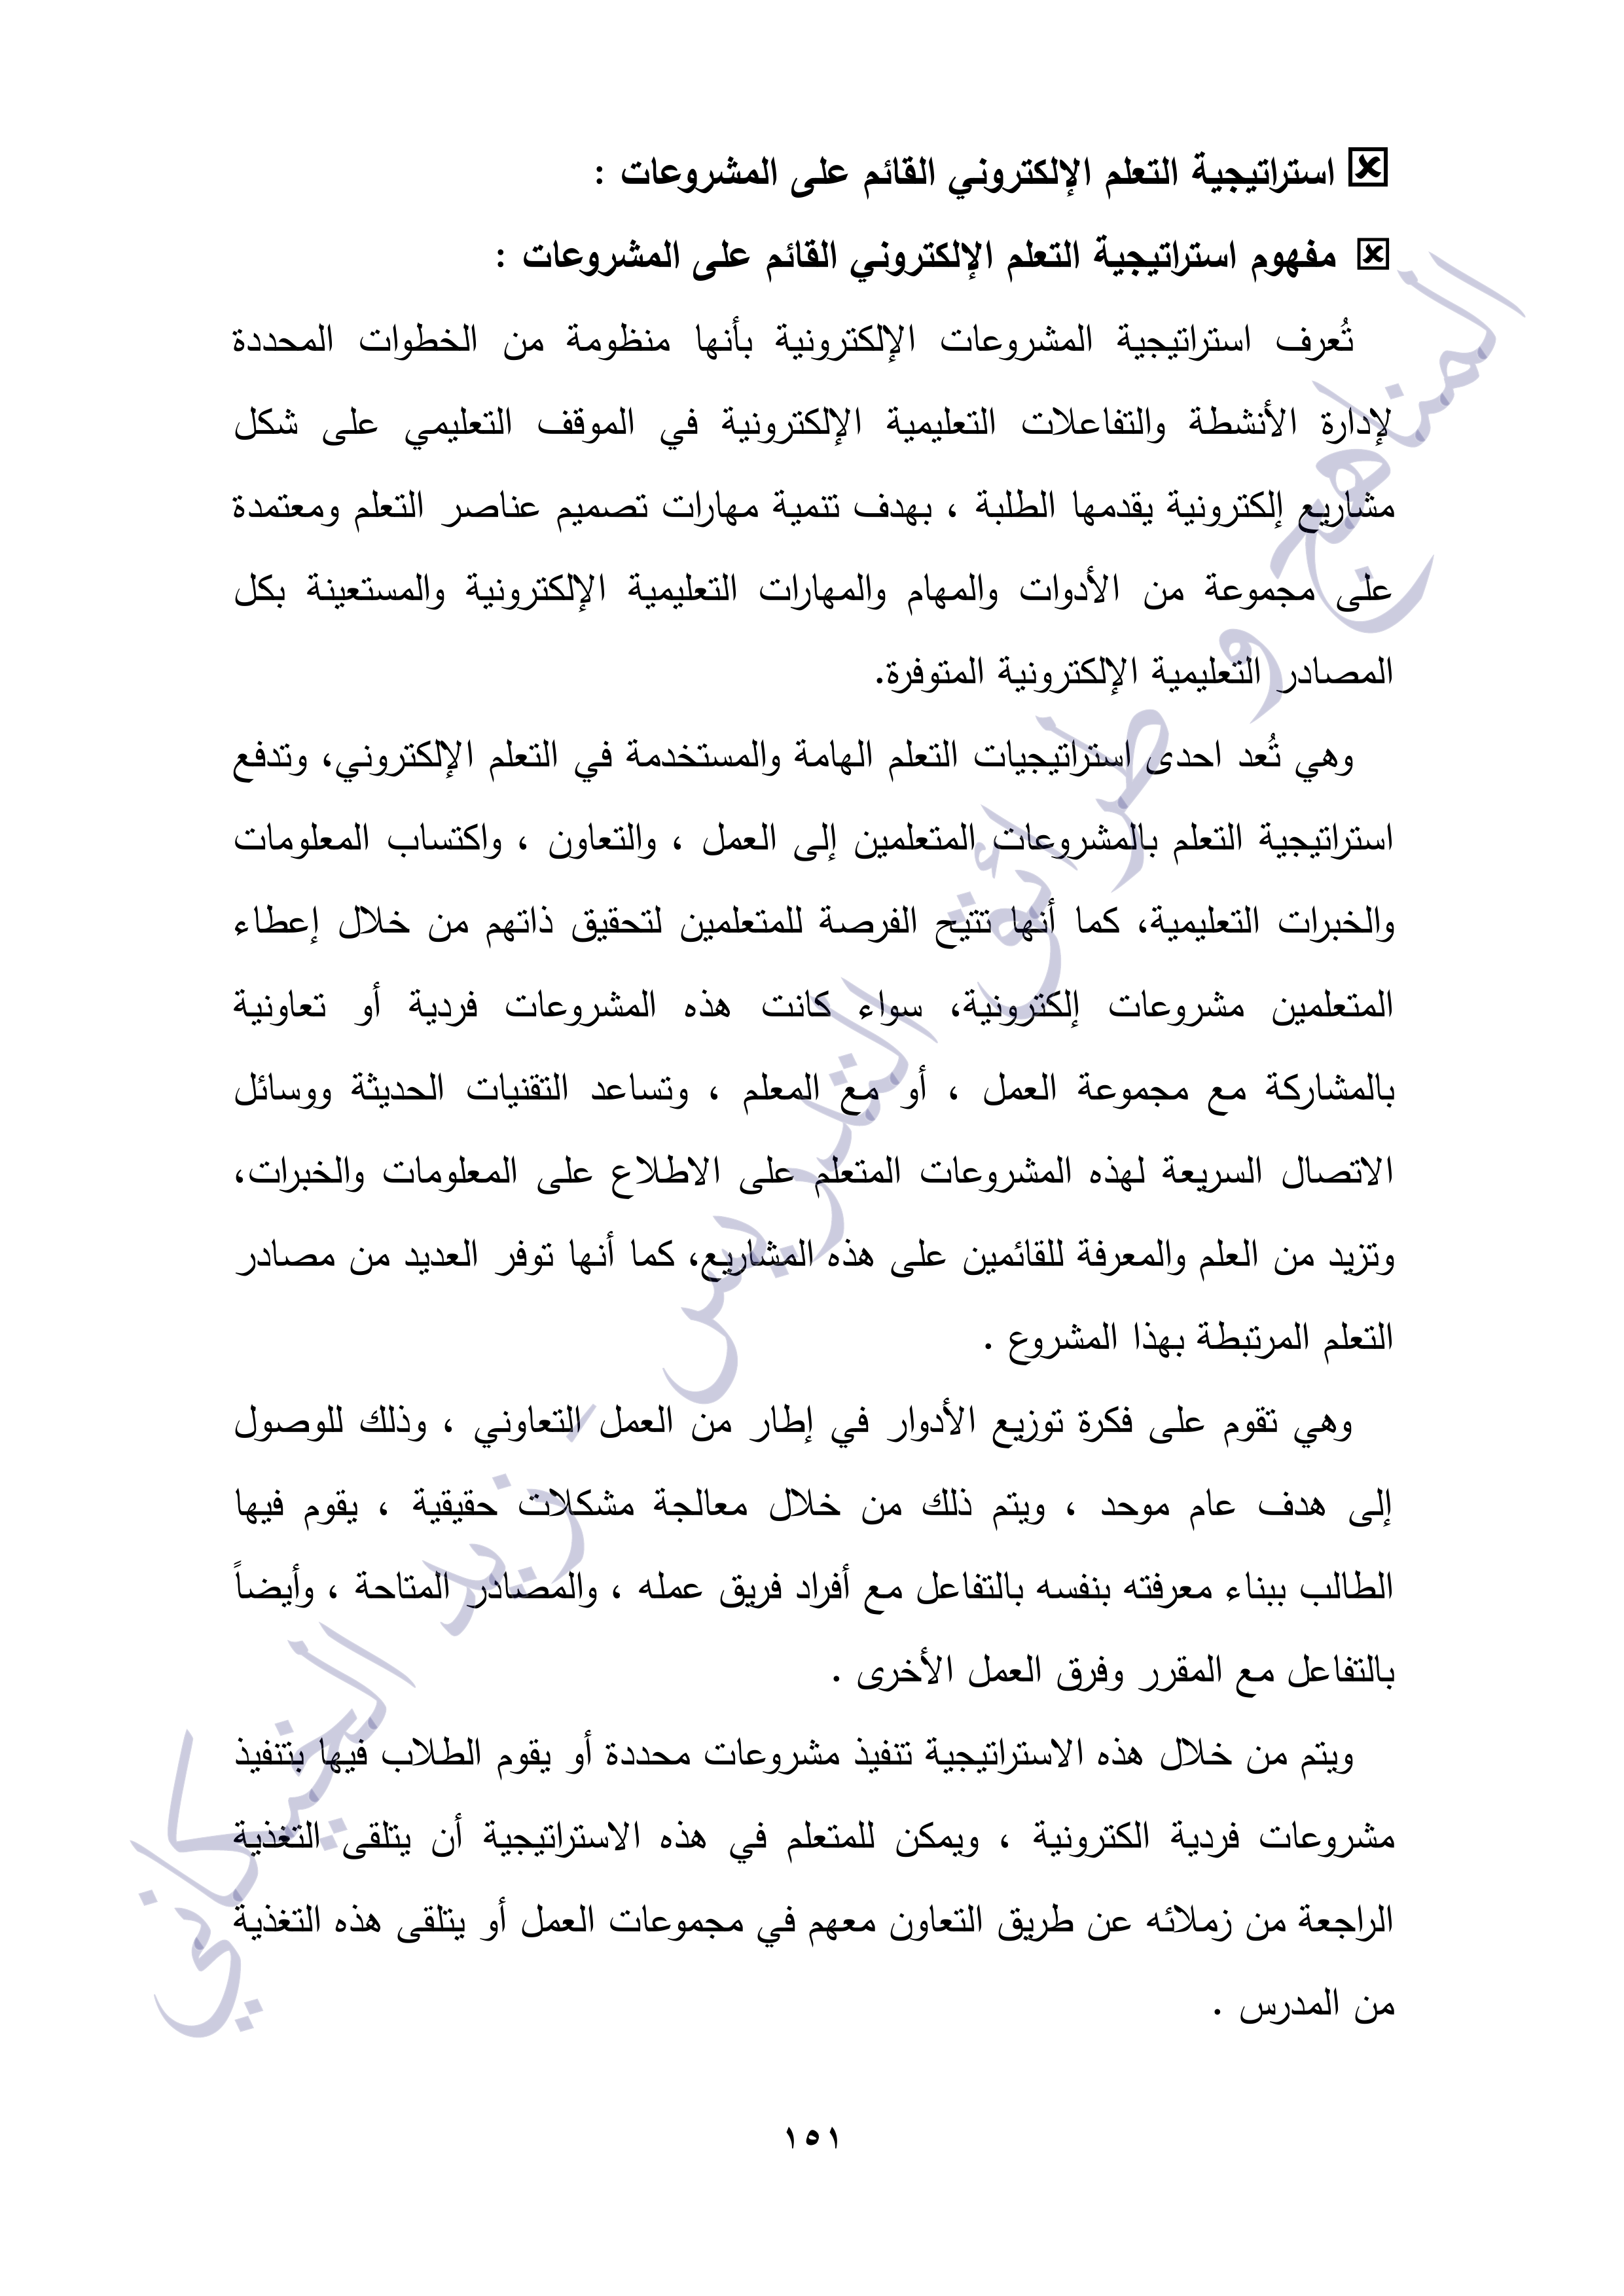 استراتيجية التعلم الإلكتروني القائم على المشروعات :
مفهوم استراتيجية التعلم الإلكتروني القائم على المشروعات :
تُعرف استراتيجية المشروعات الإلكترونية بأنها منظومة من الخطوات المحددة
لإدارة الأنشطة والتفاعلات التعليمية الإلكترونية في الموقف التعليمي على شكل
مشاريع إلكترونية يقدمها الطلبة ، بهدف تتمية مهارات تصميم عناصر التعلم ومعتمدة
على مجموعة من الأدوات والمهام والمهارات التعليمية الإلكترونية والمستعينة بكل
المصادر التعليمية الإلكترونية المتوفرة.
وهي تُعد احدى استراتيجيات التعلم الهامة والمستخدمة في التعلم الإلكتروني، وتدفع
استراتيجية التعلم بالمشروعات المتعلمين إلى العمل ، والتعاون ، واكتساب المعلومات
والخبرات التعليمية، كما أنها تتيح الفرصة للمتعلمين لتحقيق ذاتهم من خلال إعطاء
المتعلمين مشروعات إلكترونية، سواء كانت هذه المشروعات فردية أو تعاونية
بالمشاركة مع مجموعة العمل ، أو مع المعلم ، وتساعد التقنيات الحديثة ووسائل
الاتصال السريعة لهذه المشروعات المتعلم على الاطلاع على المعلومات والخبرات،
وتزيد من العلم والمعرفة للقائمين على هذه المشاريع، كما أنها توفر العديد من مصادر
التعلم المرتبطة بهذا المشروع .
وهي تقوم على فكرة توزيع الأدوار في إطار من العمل التعاوني ، وذلك للوصول
إلى هدف عام موحد ، ويتم ذلك من خلال معالجة مشكلات حقيقية ، يقوم فيها
الطالب ببناء معرفته بنفسه بالتفاعل مع أفراد فريق عمله ، والمصادر المتاحة ، وأيضاً
بالتفاعل مع المقرر وفرق العمل الأخرى .
ويتم من خلال هذه الاستراتيجية تنفيذ مشروعات محددة أو يقوم الطلاب فيها بتنفيذ
مشروعات فردية الكترونية ، ويمكن للمتعلم في هذه الاستراتيجية أن يتلقى التغذية
الراجعة من زملائه عن طريق التعاون معهم في مجموعات العمل أو يتلقى هذه التغذية
من المدرس .
١٥١
المناهج و طرائق التدريس - زيد الخيكاني